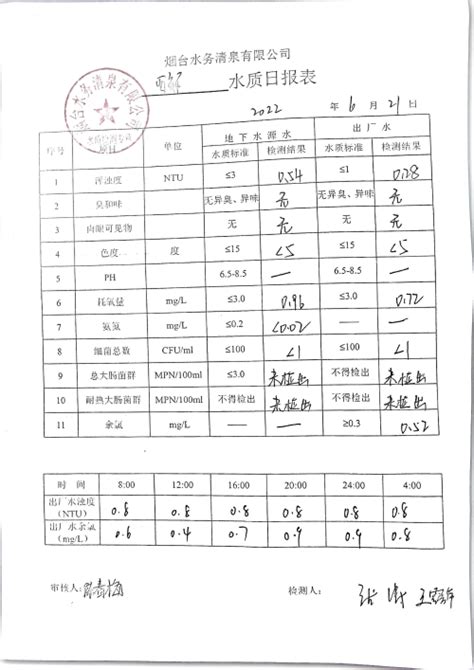 烟台水务清泉有限公司
水质日报表
烟台水务清泉有限公司
2022 年 6 月 21 日
序号 项目 单位 地下水源水 出厂水
水质标准 检测结果 水质标准 检测结果
1 浑浊度 NTU ≤3 0.54 ≤1 0.28
2 臭和味 无异臭、异味 无 无异臭、异味 无
3 肉眼可见物 无 无 无 无
4 色度 度 ≤15 <5 ≤15 <5
5 PH 6.5-8.5 — 6.5-8.5 —
6 耗氧量 mg/L ≤3.0 0.96 ≤3.0 0.72
7 氨氮 mg/L ≤0.2 <0.02 — —
8 细菌总数 CFU/ml ≤100 <1 ≤100 <1
9 总大肠菌群 MPN/100ml ≤3.0 未检出 不得检出 未检出
10 耐热大肠菌群 MPN/100ml 不得检出 未检出 不得检出 未检出
11 余氯 mg/L — — ≥0.3 0.52
时 间 8:00 12:00 16:00 20:00 24:00 4:00
出厂水浊度(NTU) 0.8 0.8 0.8 0.8 0.8 0.8
出厂水余氯(mg/L) 0.6 0.4 0.7 0.9 0.9 0.8
审核人： 检测人：